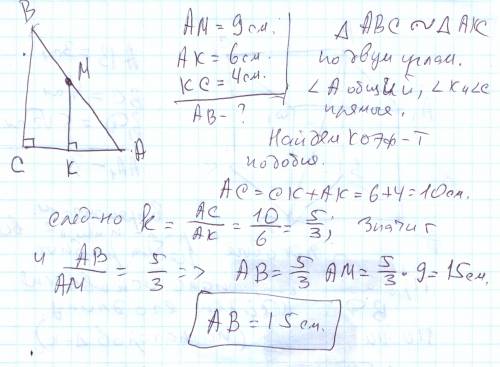 B
M
C
K
A
AM = 9 см.
AK = 6 см.
KC = 4 см.
AB - ?
Δ ABC ~ Δ AKC
по двум углам.
∠A общий, ∠K и ∠C
прямые.
Найдем коэф-т
подобия.
AC = CK + AK = 6 + 4 = 10 см.
след-но k = AC/AK = 10/6 = 5/3; значит
и AB/AM = 5/3 => AB = 5/3 AM = 5/3 · 9 = 15 см.
AB = 15 см.